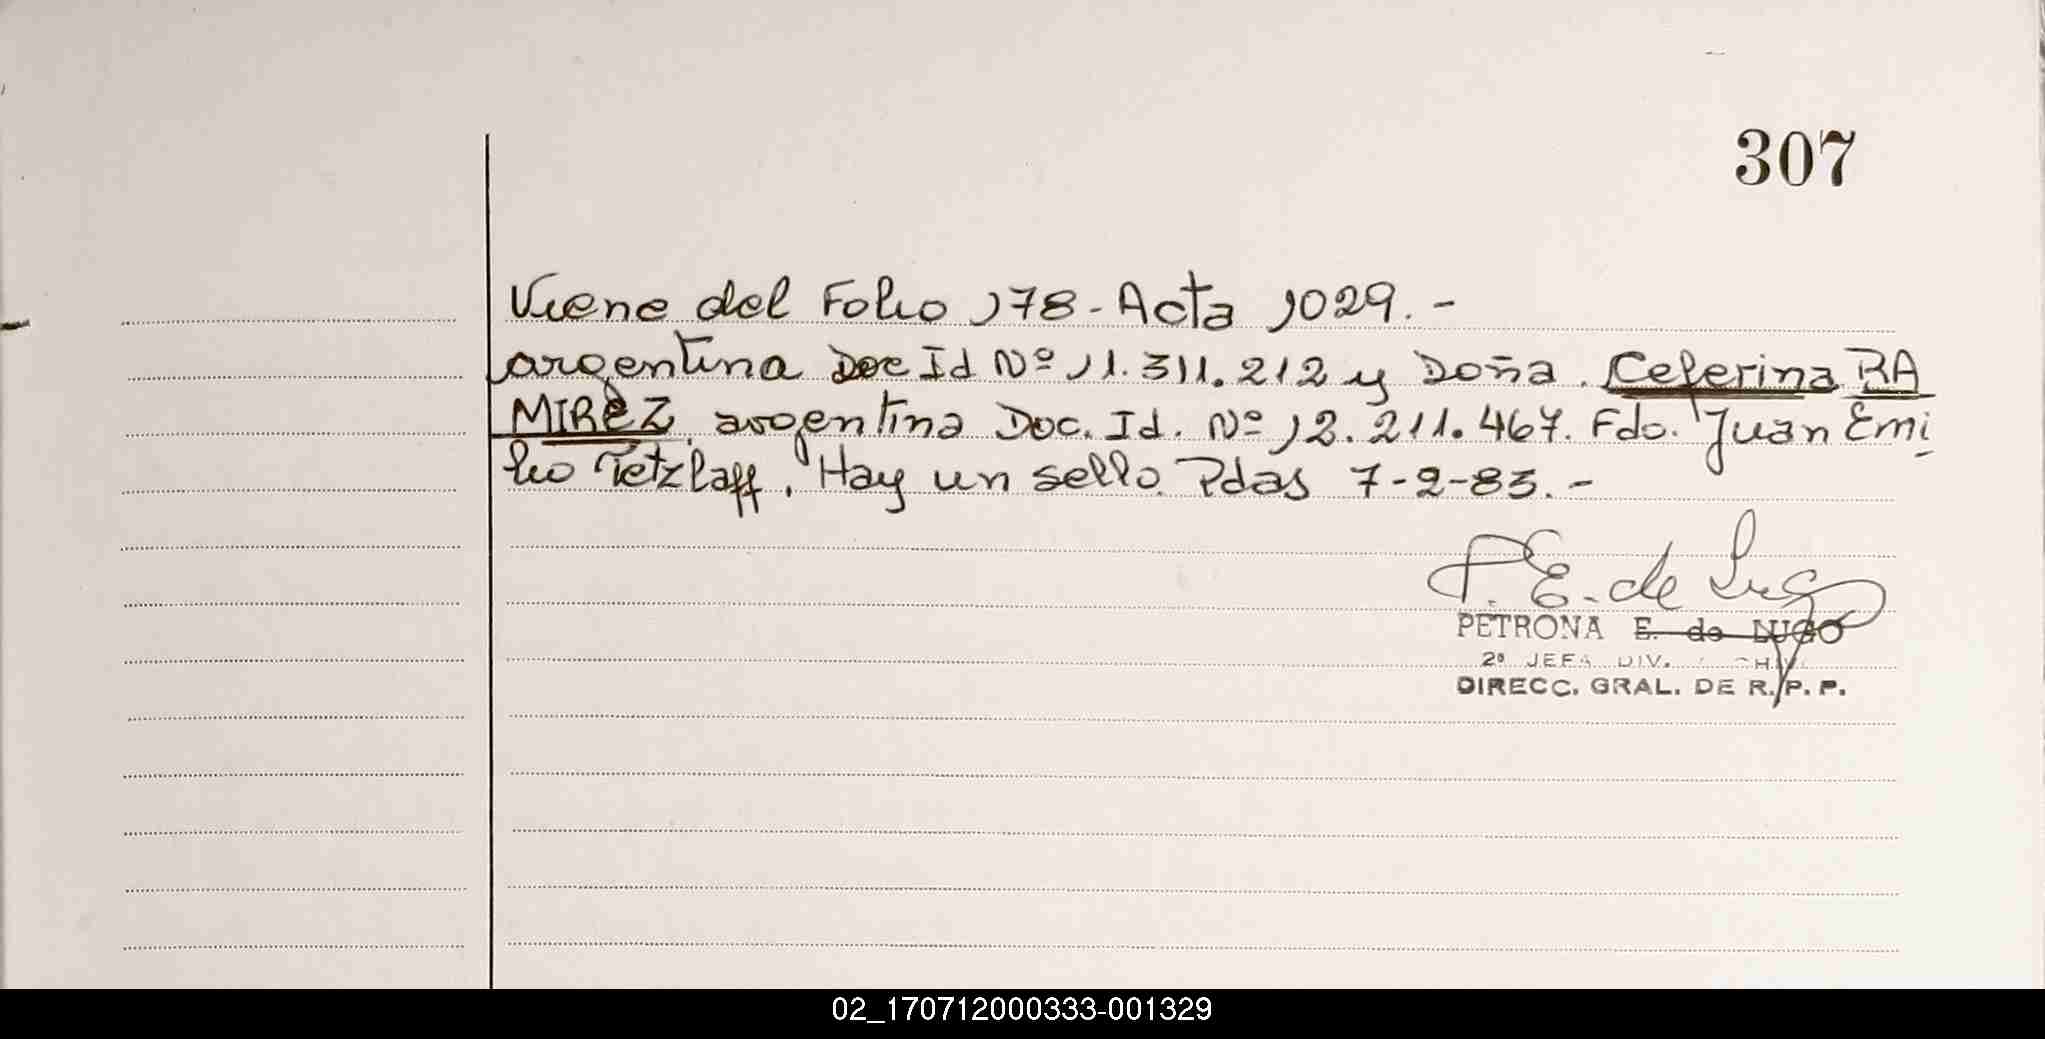 307
Viene del Folio 178 - Acta 1029. -
argentina Doc Id Nº 11.311.212 y Doña. Ceferina RA
MIREZ. argentina Doc. Id. Nº 12.211.467. Fdo. Juan Emi
lio Tetzlaff. Hay un sello. Pdas 7-2-83. -
P. E. de Lugo
PETRONA E. de LUGO
2ª JEFA DIV.
DIRECC. GRAL. DE R. P. P.
02_170712000333-001329